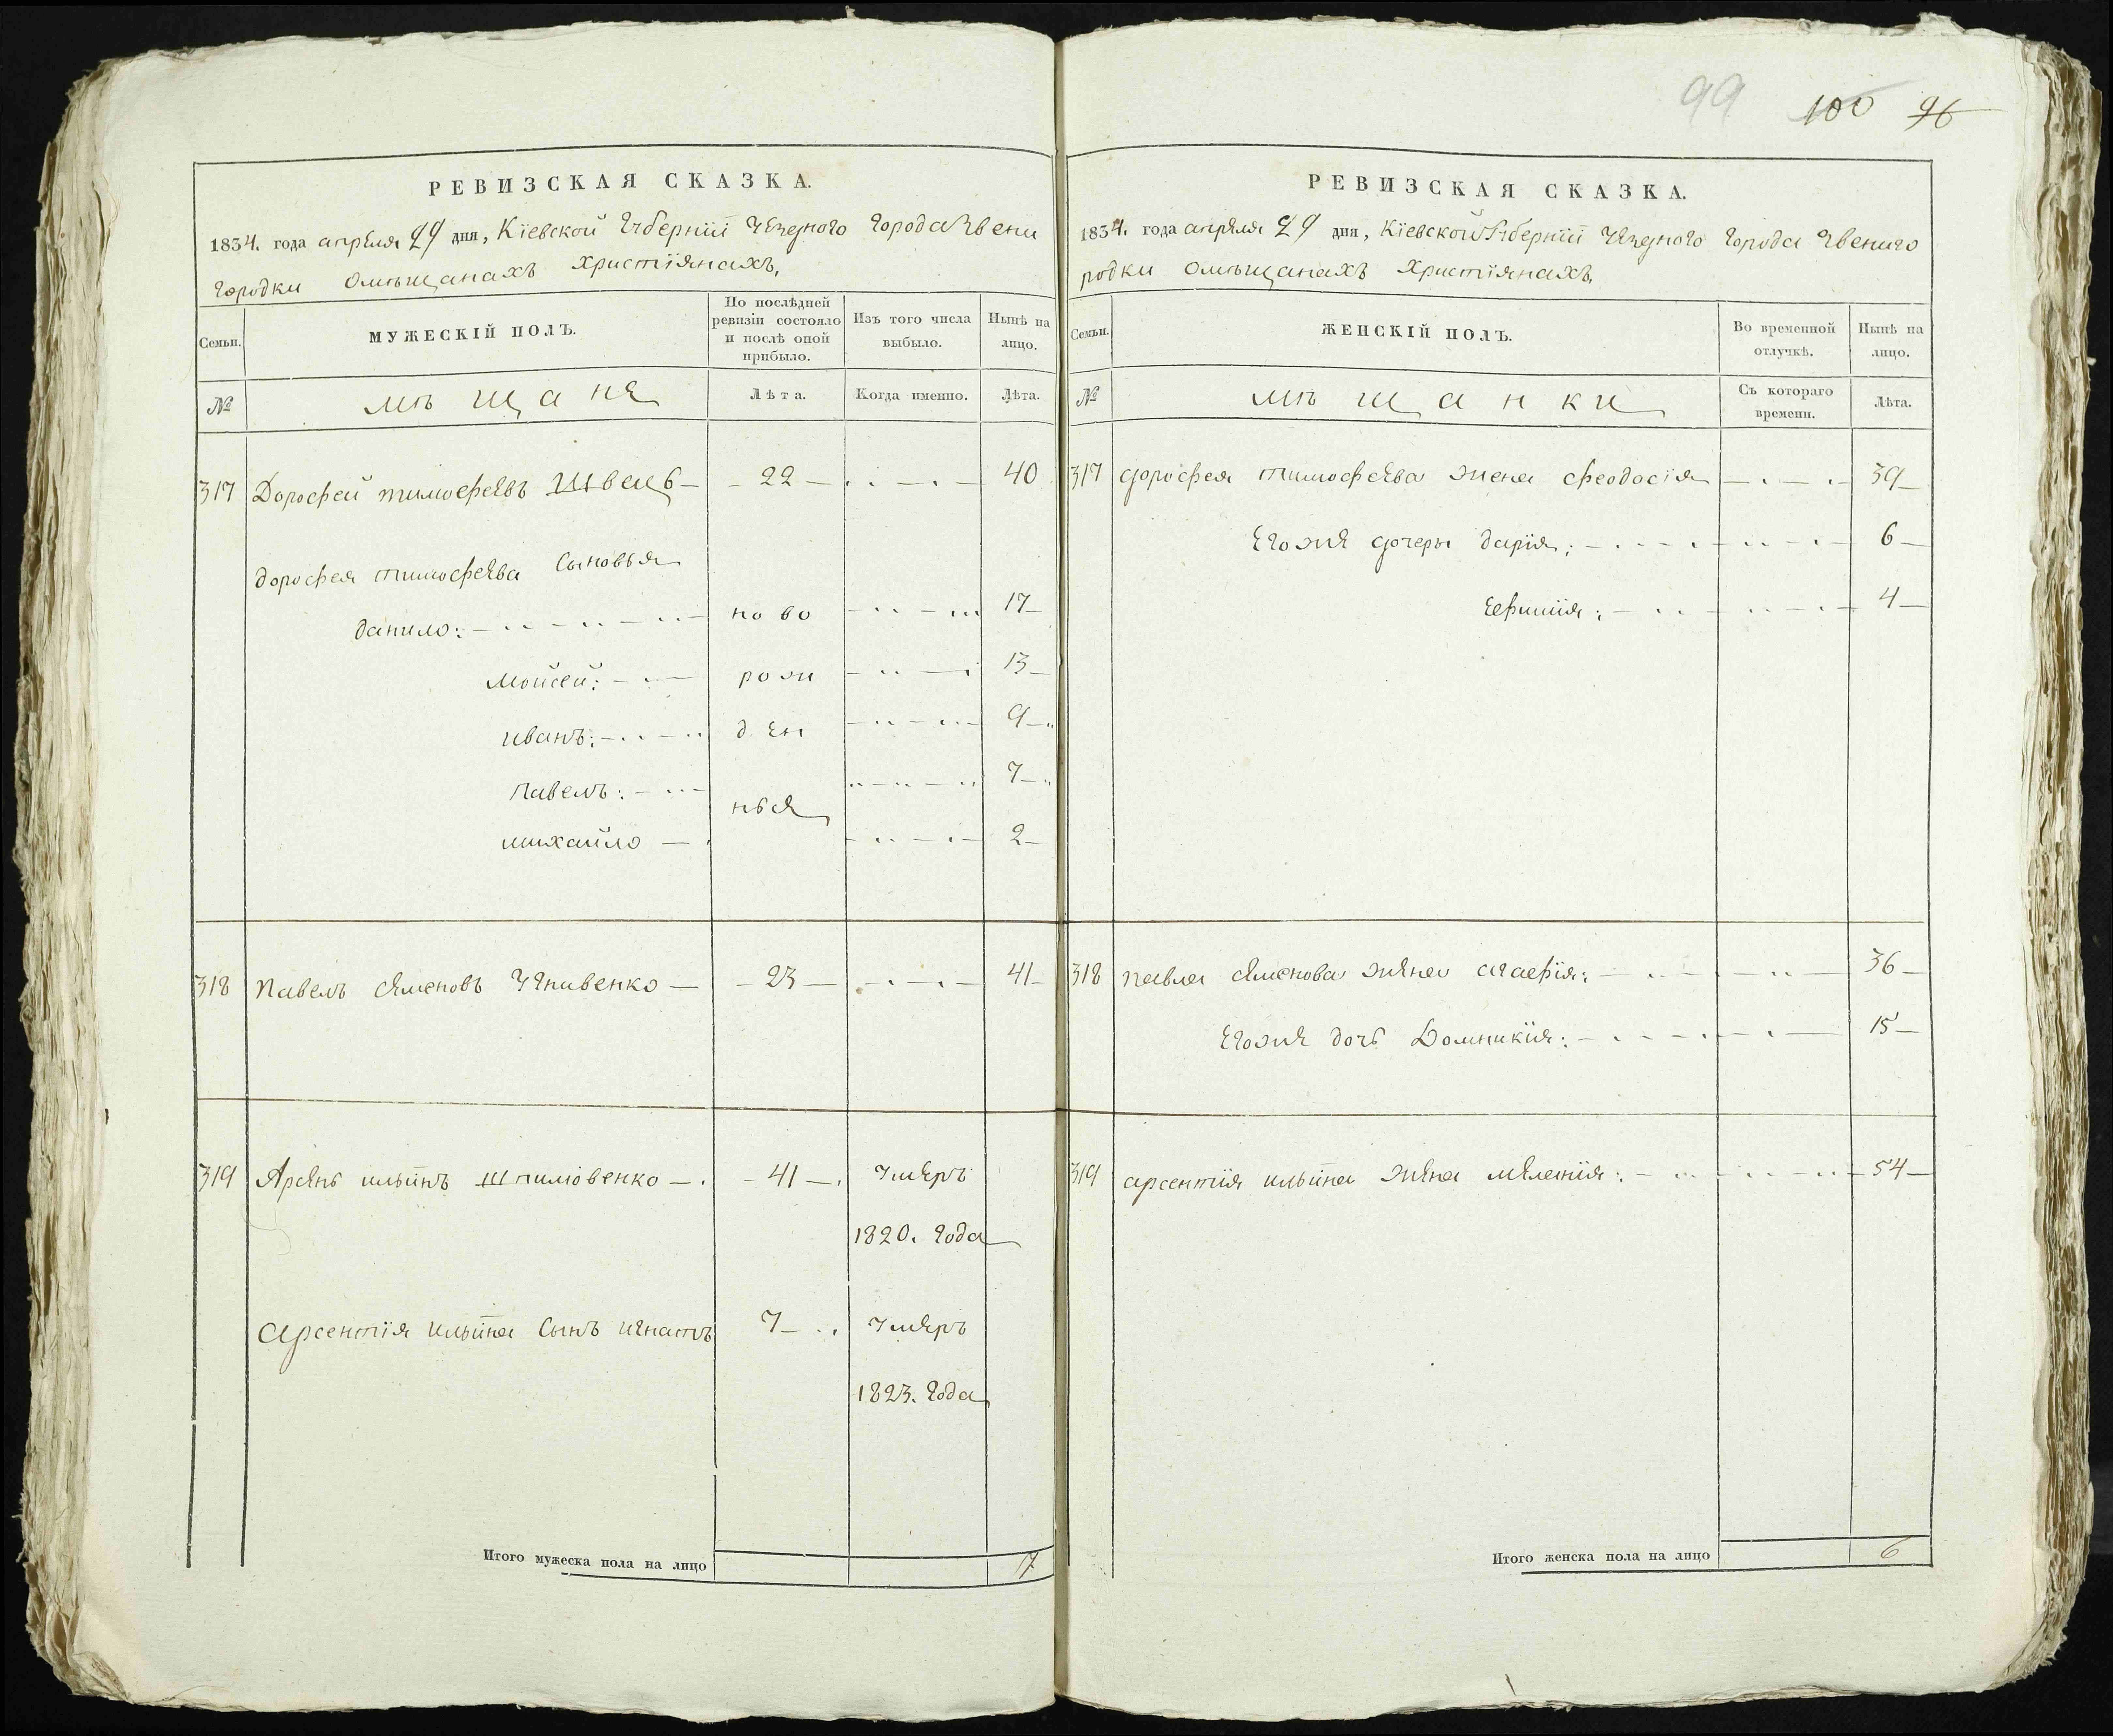 99 100 96
РЕВИЗСКАЯ СКАЗКА.
1834. года апреля 29 дня, Кіевской Губерніи Уезднаго Города Звени
городки Омѣщанахъ Христіянахъ.
Семьи.
МУЖЕСКІЙ ПОЛЪ.
По послѣдней
ревизіи состояло
и послѣ оной
прибыло.
Изъ того числа
выбыло.
Нынѣ на
лицо.
№
мѣщане
Лѣта.
Когда именно.
Лѣта.
317 Дорофей тимофеевъ Швець — 22 — 40
дорофея тимофеева Сыновья
данило: ново 17
мойсей: рож 13
иванъ: ден 9
павелъ: 7
ные
михайло 2
318 павелъ семеновъ — 23 — 41
319 Арсень ильинъ — 41 — умеръ
1820. Года
арсентія ильина Сынъ игнатъ 7 умеръ
1823. Года
Итого мужеска пола на лицо 7
РЕВИЗСКАЯ СКАЗКА.
1834. года апреля 29 дня, Кіевской Губерніи Уезднаго Города Звениго
родки Омѣщанахъ Христіянахъ.
Семьи.
ЖЕНСКІЙ ПОЛЪ.
Во временной
отлучкѣ.
Нынѣ на
лицо.
№
мѣщанки
Съ котораго
времени.
Лѣта.
317 дорофея тимофеева жена феодосія 39
Егоже дочеры дарія; 6
Ефимія: 4
318 павла семенова жена агафія: 36
Егоже дочь Домникія: 15
319 арсентія ильина жена меланія: 54
Итого женска пола на лицо 6